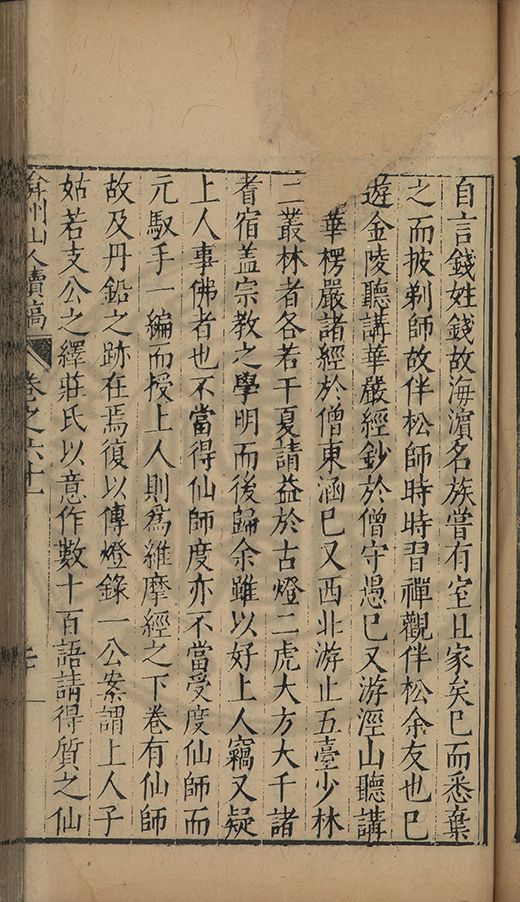 自言錢姓錢故海濵名族嘗有室且家矣已而悉棄
之而披剃師故伴松師時時習禪觀伴松余友也已
遊金陵聽講華嚴經鈔於僧守愚已又游涇山聽講
華楞嚴諸經於僧東涵已又西北游止五臺少林
二叢林者各若干夏請益於古燈二虎大方大千諸
耆宿盖宗教之學明而後歸余雖以好上人竊又疑
上人事佛者也不當得仙師度亦不當受度仙師而
元馭手一編而授上人則爲維摩經之下卷有仙師
故及丹鉛之跡在焉復以傳燈錄一公案謂上人子
姑若支公之繹莊氏以意作數十百語請得質之仙
州山人續稿 卷之六十一